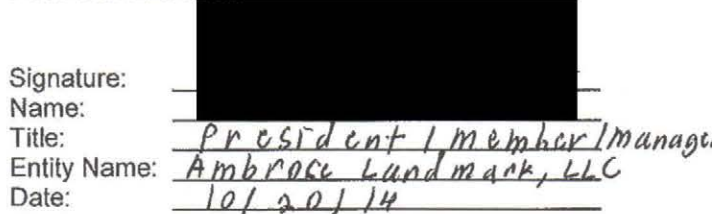 Signature:
Name:
Title: President / member / manage
Entity Name: Ambrose Landmark, LLC
Date: 10/20/14